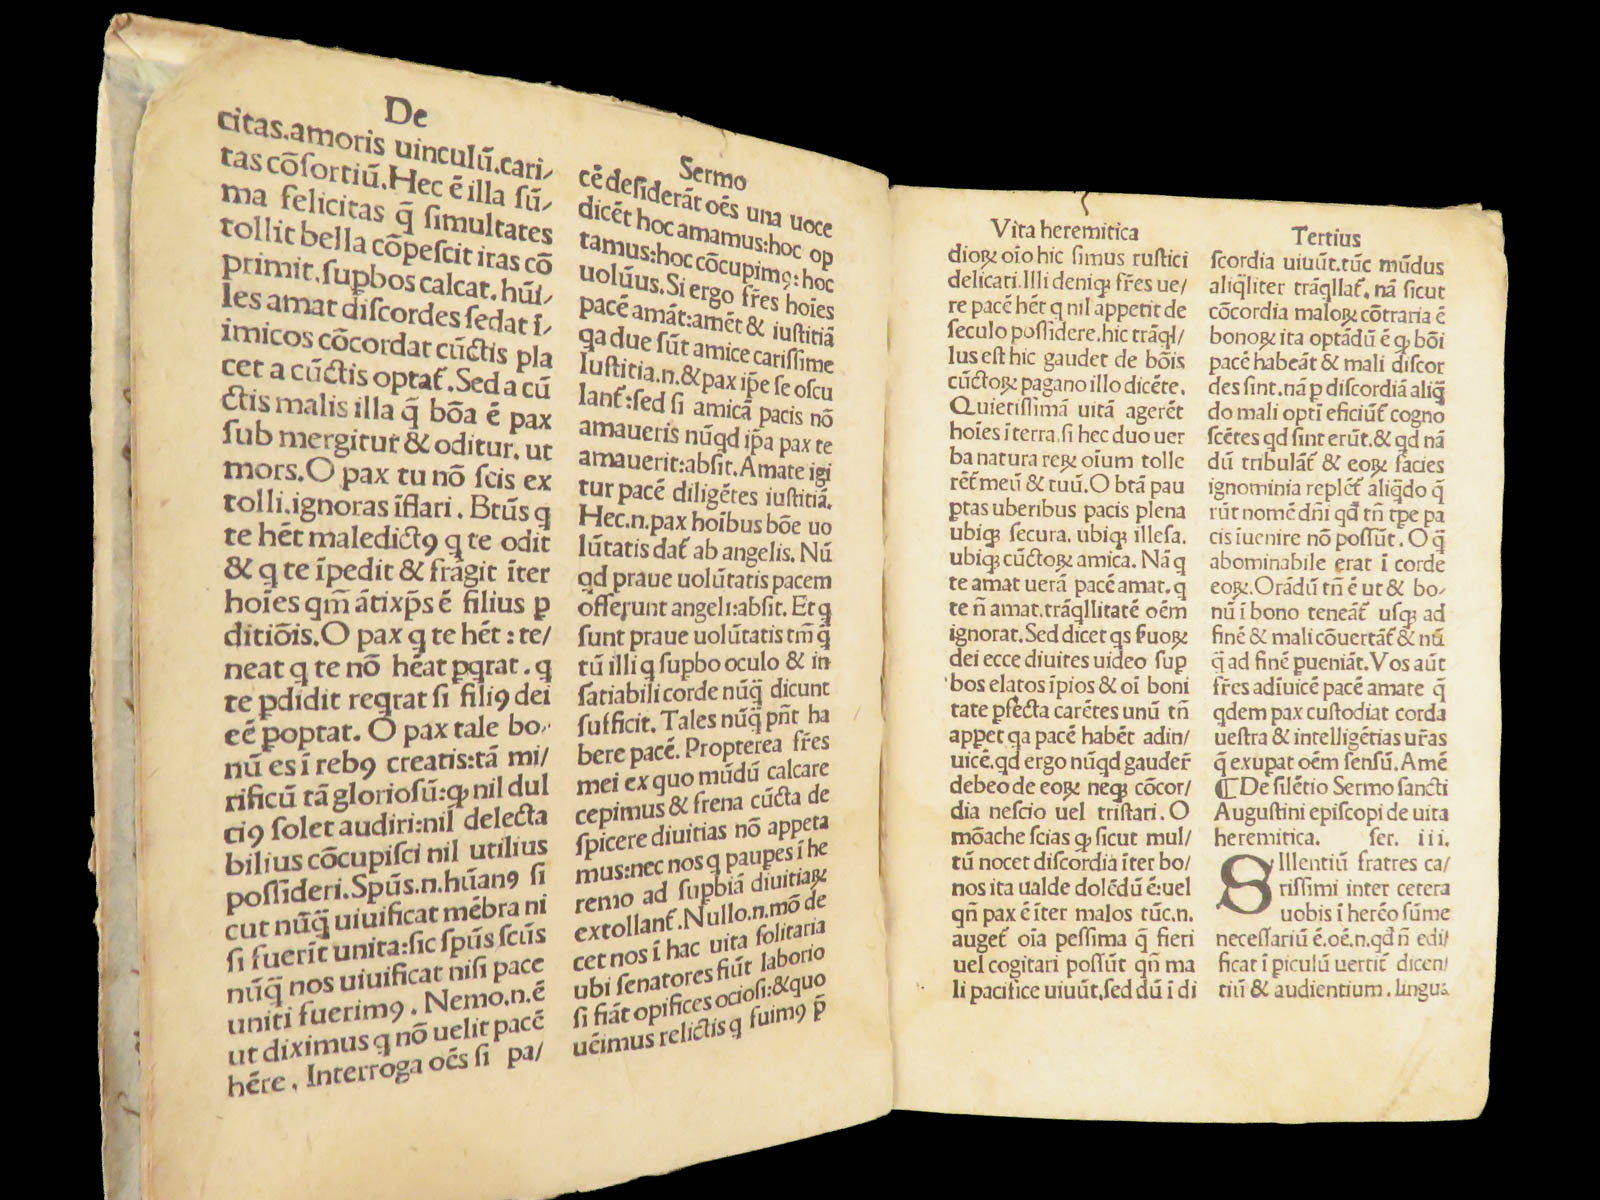 De
citas.amoris uinculũ.cari/
tas cõsortiũ.Hec ẽ illa sũ/
ma felicitas q̃ simultates
tollit bella cõpescit iras cõ
primit.suꝑbos calcat.hũi/
les amat discordes sedat ĩ/
imicos cõcordat cũctis pla
cet a cũctis optat᷑.Sed a cũ
ctis malis illa q̃ bõa ẽ pax
sub mergitur & oditur. ut
mors.O pax tu nõ scis ex
tolli.ignoras ĩflari. Btũs q
te hẽt maledictꝰ q te odit
& q te ĩpedit & frãgit ĩter
hoĩes qm̃ ãtixp̃s ẽ filius ꝑ
ditiõis.O pax q te hẽt : te/
neat q te nõ hẽat ꝑqrat. q
te ꝑdidit reqrat si filiꝰ dei
eẽ ꝑoptat. O pax tale bo/
nũ es ĩ rebꝰ creatis:tã mi/
rificũ tã gloriosũ:ꝙ nil dul
ciꝰ solet audiri:nil delecta
bilius cõcupisci nil utilius
possideri.Spũs.n.hũanꝰ si
cut nũq̃ uiuificat mẽbra ni
si fuerĩt unita:sic spũs scũs
nũq̃ nos uiuificat nisi pace
uniti fuerimꝰ. Nemo.n.ẽ
ut diximus q nõ uelit pacẽ
hẽre. Interroga oẽs si pa/
Sermo
cẽ desiderãt oẽs una uoce
dicẽt hoc amamus:hoc op
tamus:hoc cõcupimꝰ: hoc
uolũus.Si ergo fr̃es hoĩes
pacẽ amãt:amẽt & iustitiã
qa due sũt amice carissime
Iustitia.n.&pax ip̃e se oscu
lant᷑:sed si amicã pacis nõ
amaueris nũqd ip̃a pax te
amauerit:absit.Amate igi
tur pacẽ diligẽtes iustitiã.
Hec.n.pax hoĩbus bõe uo
lũtatis dat᷑ ab angelis. Nũ
qd praue uolũtatis pacem
offerunt angeli:absit. Et q
sunt praue uolũtatis tm̃ q̃
tũ illi q suꝑbo oculo & in
satiabili corde nũq̃ dicunt
sufficit. Tales nũq̃ pñt ha
bere pacẽ. Propterea fr̃es
mei ex quo mũdũ calcare
cepimus & frena cũcta de
spicere diuitias nõ appeta
mus:nec nos q pauꝑes ĩ he
remo ad suꝑbiã diuitiaꝝ
extollant᷑.Nullo.n.mõ de
cet nos ĩ hac uita solitaria
ubi senatores fiũt laborio
si fiãt opifices ociosi:&quo
uẽimus relictis q fuimꝰ ꝑ̃
Vita heremitica
dioꝝ oĩo hic simus rustici
delicati.Illi deniqꝫ fr̃es ue/
re pacẽ hẽt q nil appetit de
seculo possidere.hic trãql/
lus est hic gaudet de bõis
cũctoꝝ pagano illo dicẽte.
Quietissimã uitã agerẽt
hoĩes ĩ terra.si hec duo uer
ba natura reꝝ oĩum tolle
rẽt᷑ meũ & tuũ.O btã pau
ꝑtas uberibus pacis plena
ubiqꝫ secura. ubiqꝫ illesa.
ubiqꝫ cũctoꝝ amica. Nã q
te amat uerã pacẽ amat. q
te ñ amat.trãqllitatẽ oẽm
ignorat.Sed dicet qs s̃uoꝝ
dei ecce diuites uideo suꝑ
bos elatos ĩpios & oĩ boni
tate ꝑfecta carẽtes unũ tñ
appet qa pacẽ habẽt adin/
uicẽ.qd ergo nũqd gauder̃
debeo de eoꝝ neqꝫ cõcor/
dia nescio uel tristari. O
mõache scias ꝙ sicut mul/
tũ nocet discordia ĩter bo/
nos ita ualde dolẽdũ ẽ:uel
qñ pax ẽ ĩter malos tũc.n.
auget᷑ oĩa pessima q̃ fieri
uel cogitari possũt qñ ma
li pacifice uiuũt.sed dũ ĩ di
Tertius
scordia uiuũt.tũc mũdus
aliqliter trãqllat᷑. nã sicut
cõcordia maloꝝ cõtraria ẽ
bonoꝝ ita optãdũ ẽ ꝙ bõi
pacẽ habeãt & mali discor
des sint.nã ꝑ discordiã aliq̃
do mali opti eficiũt᷑ cogno
scẽtes qd sint erũt.& qd nã
dũ tribulãt᷑ & eoꝝ facies
ignominia replẽt᷑ aliq̃do q̃
rũt nomẽ dñi qd tñ tꝑe pa
cis iuenire nõ possũt. O q̃
abominabile erat ĩ corde
eoꝝ.Orãdũ tñ ẽ ut & bo/
nũ ĩ bono teneãt᷑ usqꝫ ad
finẽ & mali cõuertãt᷑ & nũ
q̃ ad finẽ ꝑueniãt.Vos aũt
fr̃es adĩuicẽ pacẽ amate q̃
qdem pax custodiat corda
uestra & intelligẽtias ur̃as
q̃ exuꝑat oẽm sensũ. Amẽ
¶De silẽtio Sermo sancti
Augustini episcopi de uita
heremitica. ser. iii.
SIllentiũ fratres ca/
rissimi inter cetera
uobis ĩ herẽo sũme
necessariũ ẽ.oẽ.n.qd ñ edi/
ficat ĩ piculũ uertit᷑ dicen/
tiũ & audientium. lingua